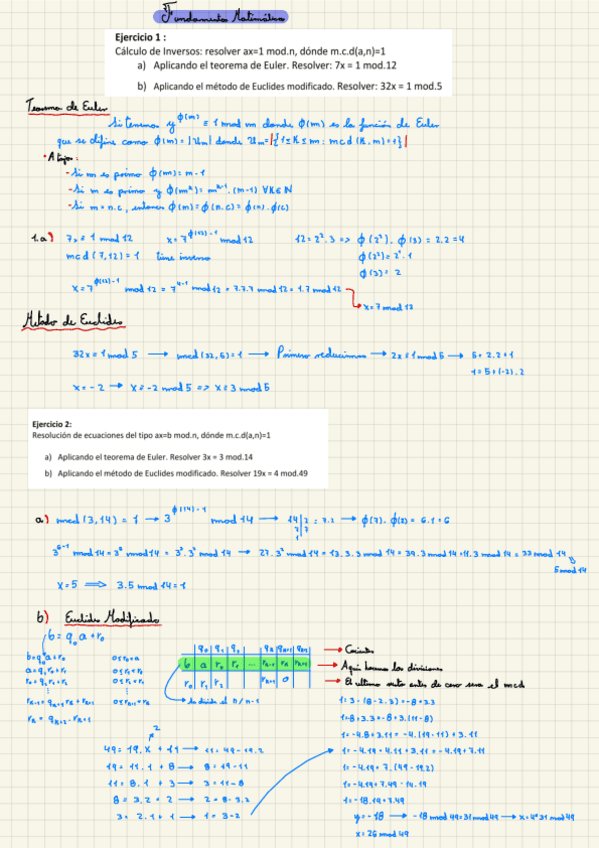 Fundamentos Matemáticos
Ejercicio 1 :
Cálculo de Inversos: resolver ax=1 mod.n, dónde m.c.d(a,n)=1
a) Aplicando el teorema de Euler. Resolver: 7x = 1 mod.12
b) Aplicando el método de Euclides modificado. Resolver: 32x = 1 mod.5
Teorema de Euler
Si tenemos y^φ(m) ≡ 1 mod m donde φ(m) es la función de Euler
que se define como φ(m)=|Um| donde Um=|{1≤K≤m: mcd(K,m)=1}|
• Atajos:
- Si m es primo φ(m)=m-1
- Si m es primo y φ(m^k)=m^k-1.(m-1) ∀K∈N
- Si m=n.c, entonces φ(m)=φ(n.c)=φ(n).φ(c)
1.a) 7x≡1 mod 12 x=7^φ(12)-1 mod 12 12=2².3 => φ(2²).φ(3)=2.2=4
mcd(7,12)=1 tiene inverso φ(2²)=2'.1
φ(3)=2
x=7^φ(12)-1 mod 12=7^4-1 mod 12=7.7.7 mod 12=1.7 mod 12
x=7 mod 12
Método de Euclides
32x≡1 mod 5 → mcd(32,5)=1 → Primero reducimos → 2x≡1 mod 5 → 5=2.2+1
1=5+(-2).2
x=-2 → x≡-2 mod 5 => x≡3 mod 5
Ejercicio 2:
Resolución de ecuaciones del tipo ax=b mod.n, dónde m.c.d(a,n)=1
a) Aplicando el teorema de Euler. Resolver 3x = 3 mod.14
b) Aplicando el método de Euclides modificado. Resolver 19x = 4 mod.49
a) mcd(3,14)=1 → 3^φ(14)-1 mod 14 → 14|2 = 7.2 → φ(7).φ(2)=6.1=6
7|7
1|
3^6-1 mod 14=3^5 mod 14=3³.3² mod 14 → 27.3² mod 14=13.3.3 mod 14=39.3 mod 14=11.3 mod 14=33 mod 14
5 mod 14
x=5 ⟹ 3.5 mod 14=1
b) Euclides Modificado
b=q₀a+r₀
b=q₀a+r₀ 0≤r₀<a
a=q₁r₀+r₁
|q₀|q₁|q₂| |qk|qk+1|
b|a|r₀|r₁| ... |rk-1|rk|
r₀|r₁|r₂| |rk+1|0|
→ Cocientes
→ Aquí hacemos las divisiones
→ El ultimo resto antes de cero sera el mcd
2
49=19.x+11 → 11=49-19.2
19=11.1+8 → 8=19-11
11=8.1+3 → 3=11-8
8=3.2+2 → 2=8-3.2
3=2.1+1 → 1=3-2
1=3-(8-2.3)=-8+3.3
1=-8+3.3=-8+3.(11-8)
1=-4.8+3.11=-4.(19-11)+3.11
1=-4.19+4.11+3.11=-4.19+7.11
1=-4.19+7.(49-19.2)
1=-4.19+7.49-14.19
1=-18.19+7.49
y=-18 → -18 mod 49=31 mod 49 → x=4*31 mod 49
x=26 mod 49